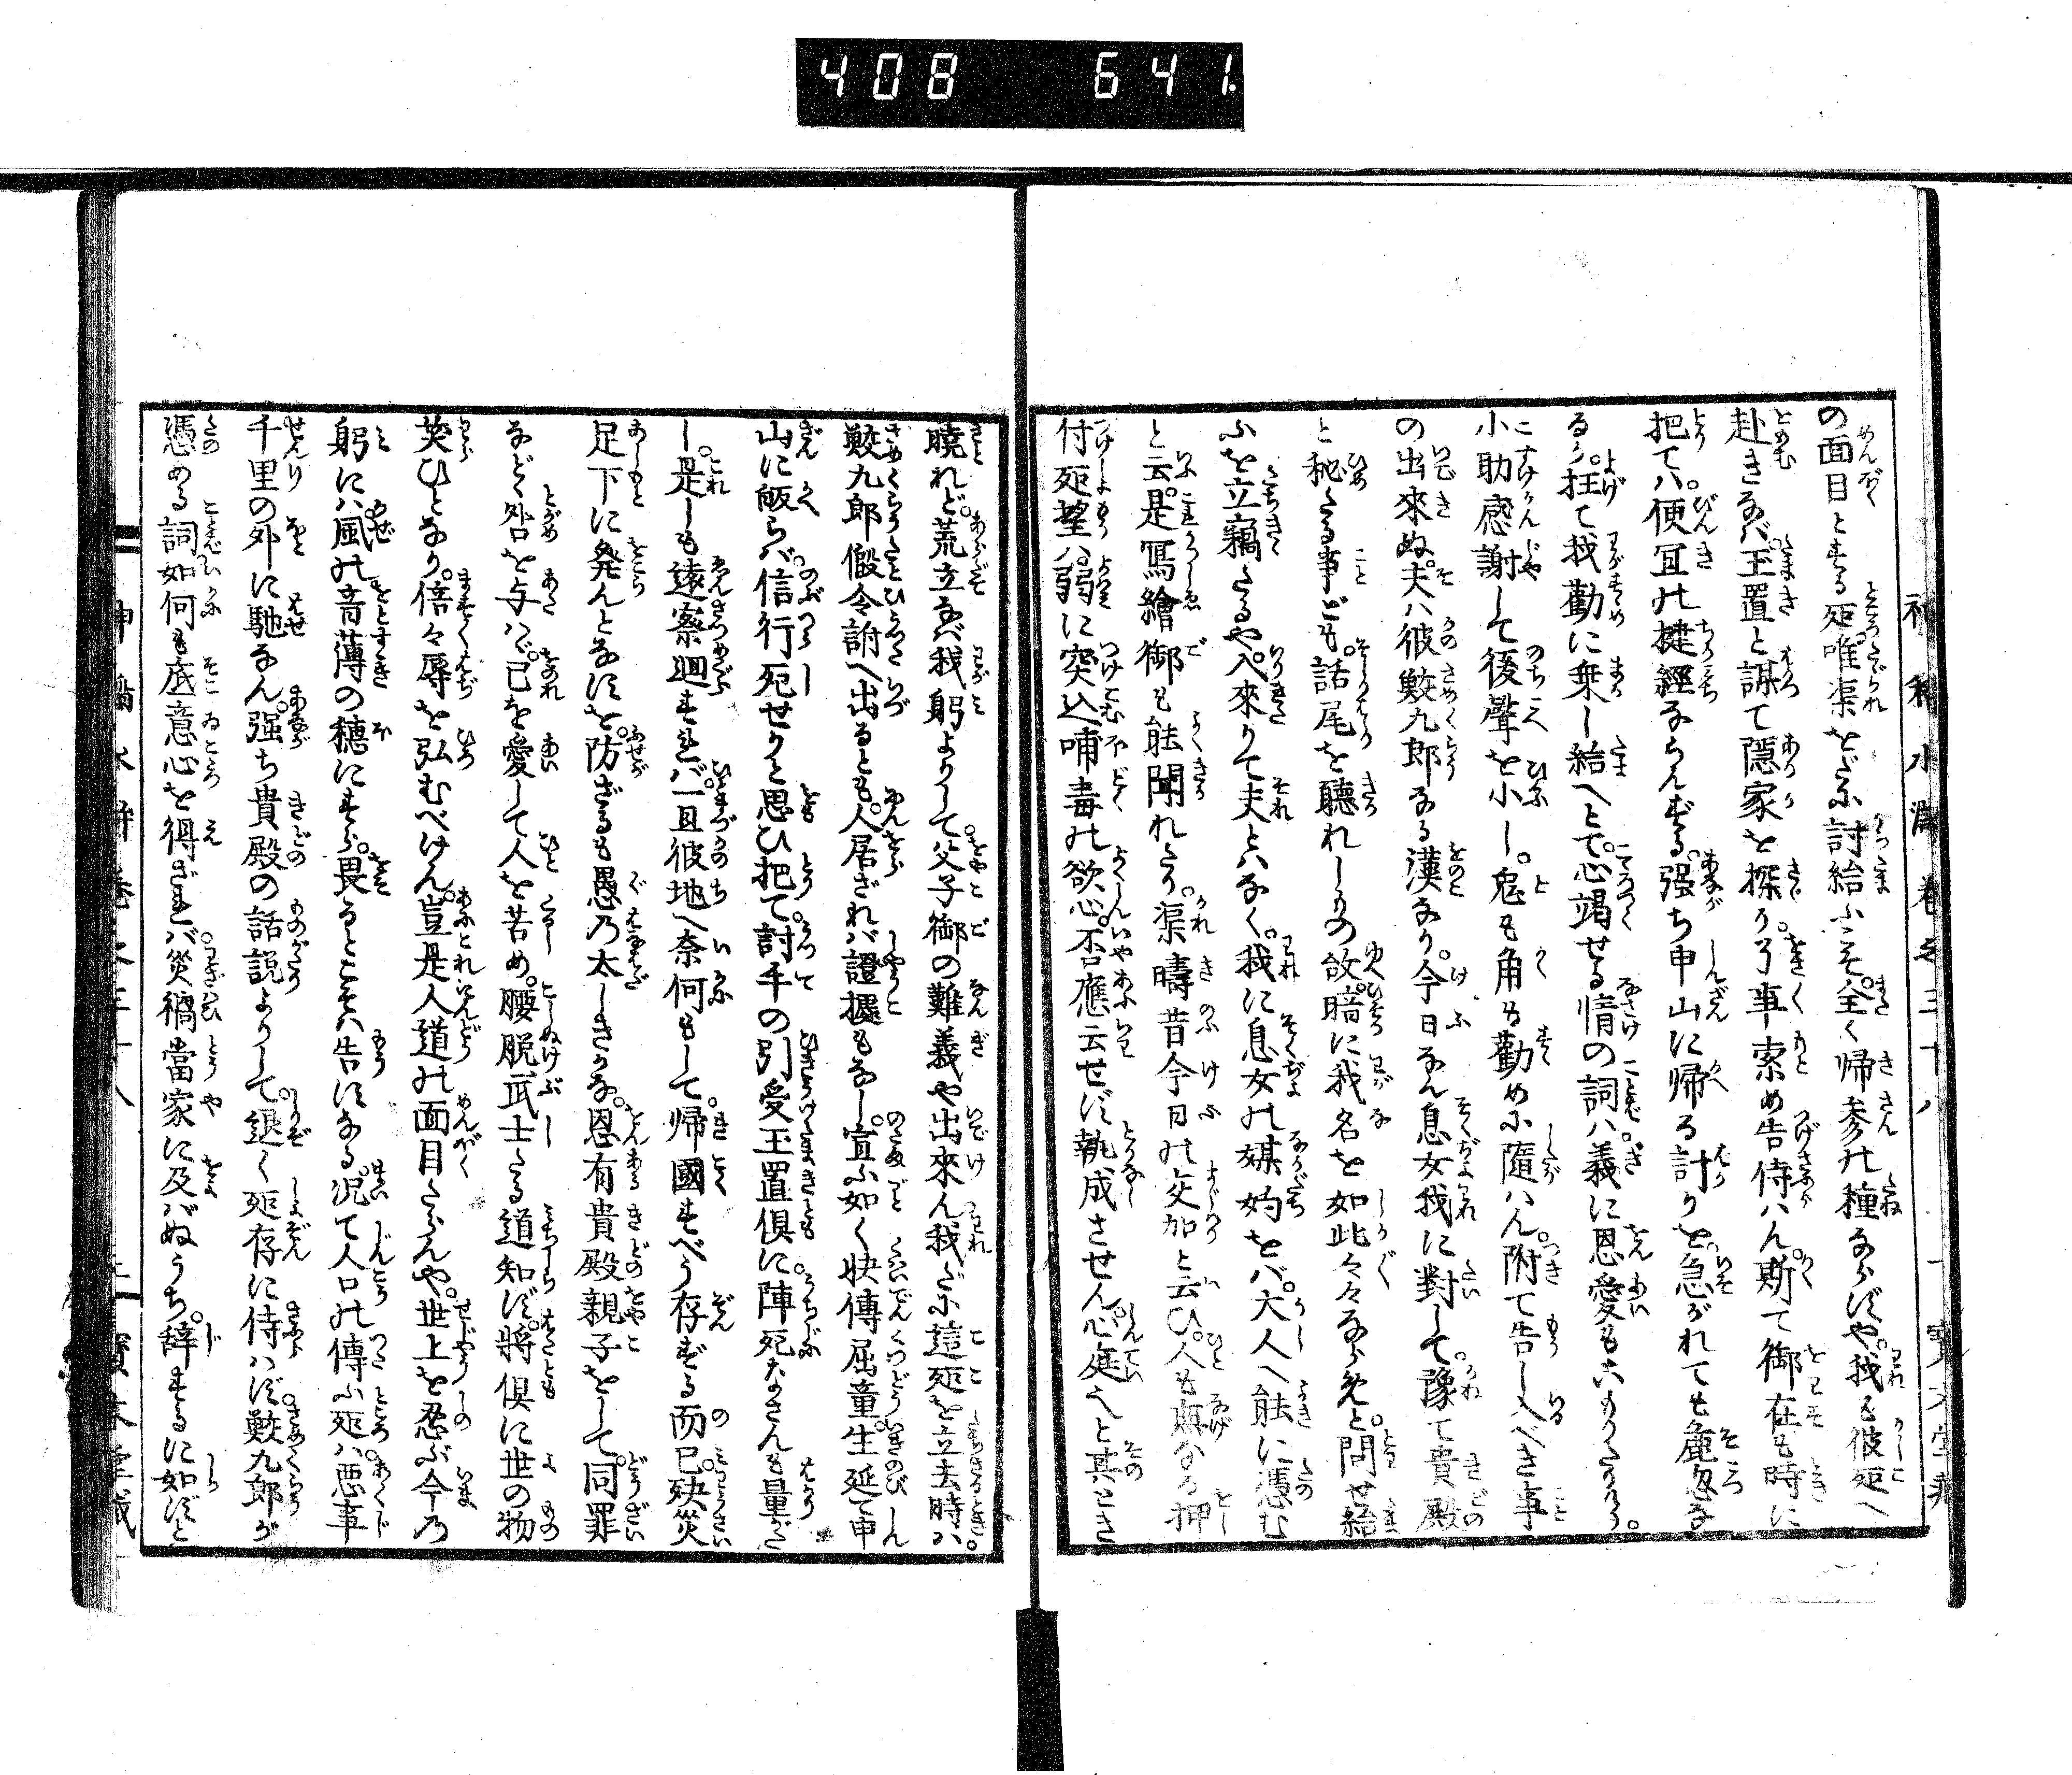 408 641.
の面目とする処唯渠をだに討給ふぞ。全く帰参の種ならずや。我も彼処へ
赴きなバ玉置と謀て隠家を探り。了事索め告侍ハん斯て御在も時に
把てハ便宜の楗經ならんずる。强ち申山に帰る計りを急がれても麁忽な
るり。抂て我勸に乗し給へとて。心竭せる情の詞ハ義に恩愛も
小助感謝して後聲を小し。兎も角も勸めに隨ハん。附て告し入べき事
の出來ぬ。夫ハ彼鮫九郎なる漢なり。今日なん息女我に對して。豫て貴殿
と秘たる事ども。話尾を聽れしものゆゑ。暗に我名を如此々々ならめと。問せ給
ふを立竊たるや。入來りて夫とハなく。我に息女の媒妁をバ。大人へ能に憑む
と云。是寫繪御も能聞れたり。渠疇昔今日の交加と云ひ。人も無なる押
付処望ハ弱に突込哺毒の欲心。否應云せず執成させん心庭と其とき
曉れど。荒立なバ我躬よりして。父子御の難義や出來ん我だに這処を立去時ハ。
鮫九郎假令訴へ出るとも。人居ざれバ證據もなし。宣ふ如く快傳屈童。生延て申
山に皈らバ。信行死せりと思ひ把て。討手の引受玉置倶に。陣死なさんも量がた
し。是しも遠察廻すれバ。一旦彼地へ奈何もして。帰國すべう存ずる而已。殃災
足下に発んとなすを。防ざるも愚乃太しきかな。恩有貴殿親子をして。同罪
など咎を与ハゞ。己を愛して人を苦め。腰脱武士たる道知ず。將倶に世の物
笑ひとなり。倍々辱を弘むべけん。豈是人道の面目たらんや。世上を忍ぶ今乃
躬にハ風の音薄の穂にすら。畏るとこそハ告すなる。况て人口の傳ふ処ハ。悪事
千里の外に馳なん。强ち貴殿の話説よりして。退く処存に侍ハず。鮫九郎が
憑める詞如何も底意心を得ざれバ。災禍當家に及バぬうち。辞するに如ずと